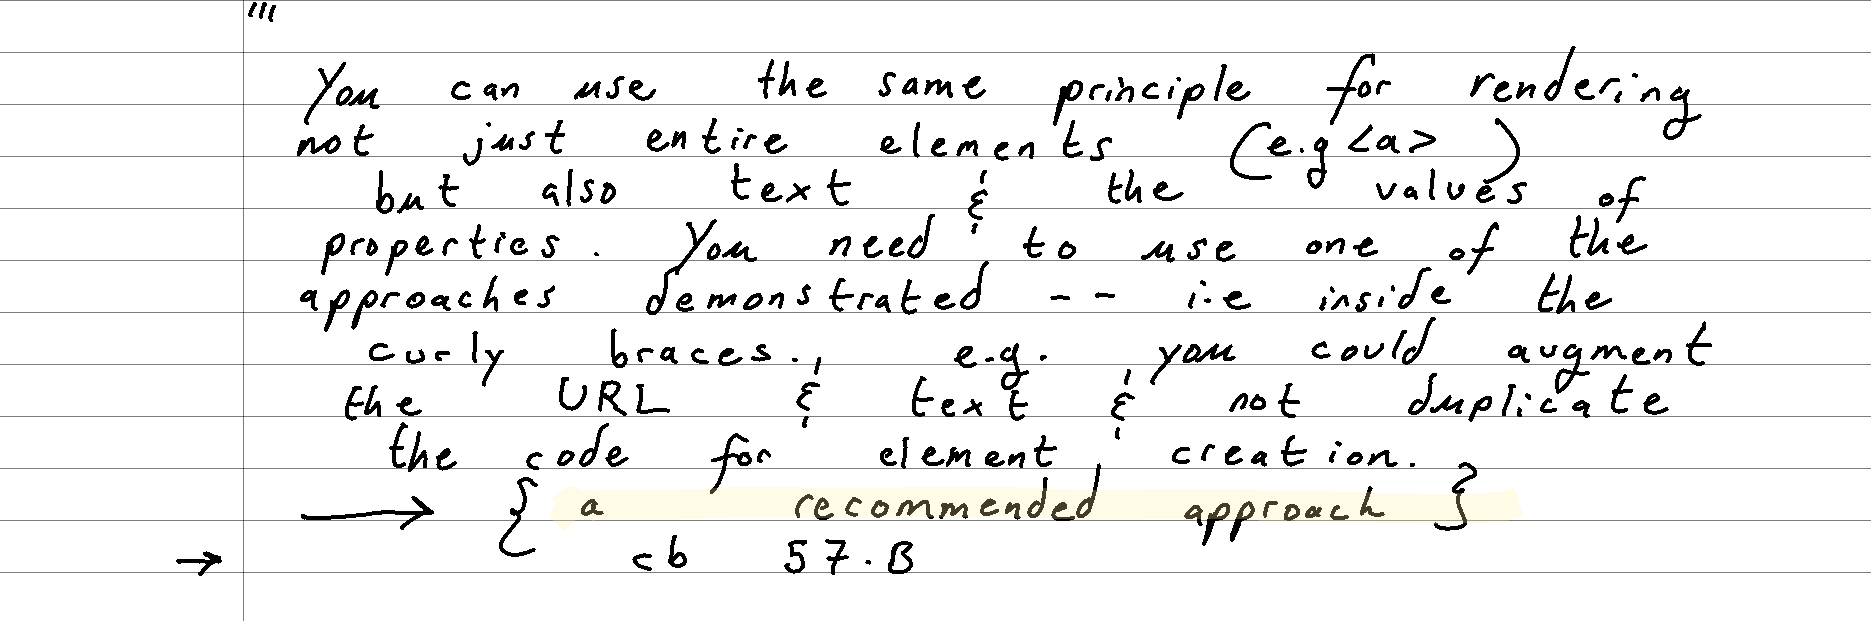 '''
You can use the same principle for rendering
not just entire elements (e.g <a> )
but also text & the values of
properties. You need to use one of the
approaches demonstrated -- i.e inside the
curly braces., e.g. you could augment
the URL & text & not duplicate
the code for element creation.
→ { a recommended approach }
→ cb 57.B